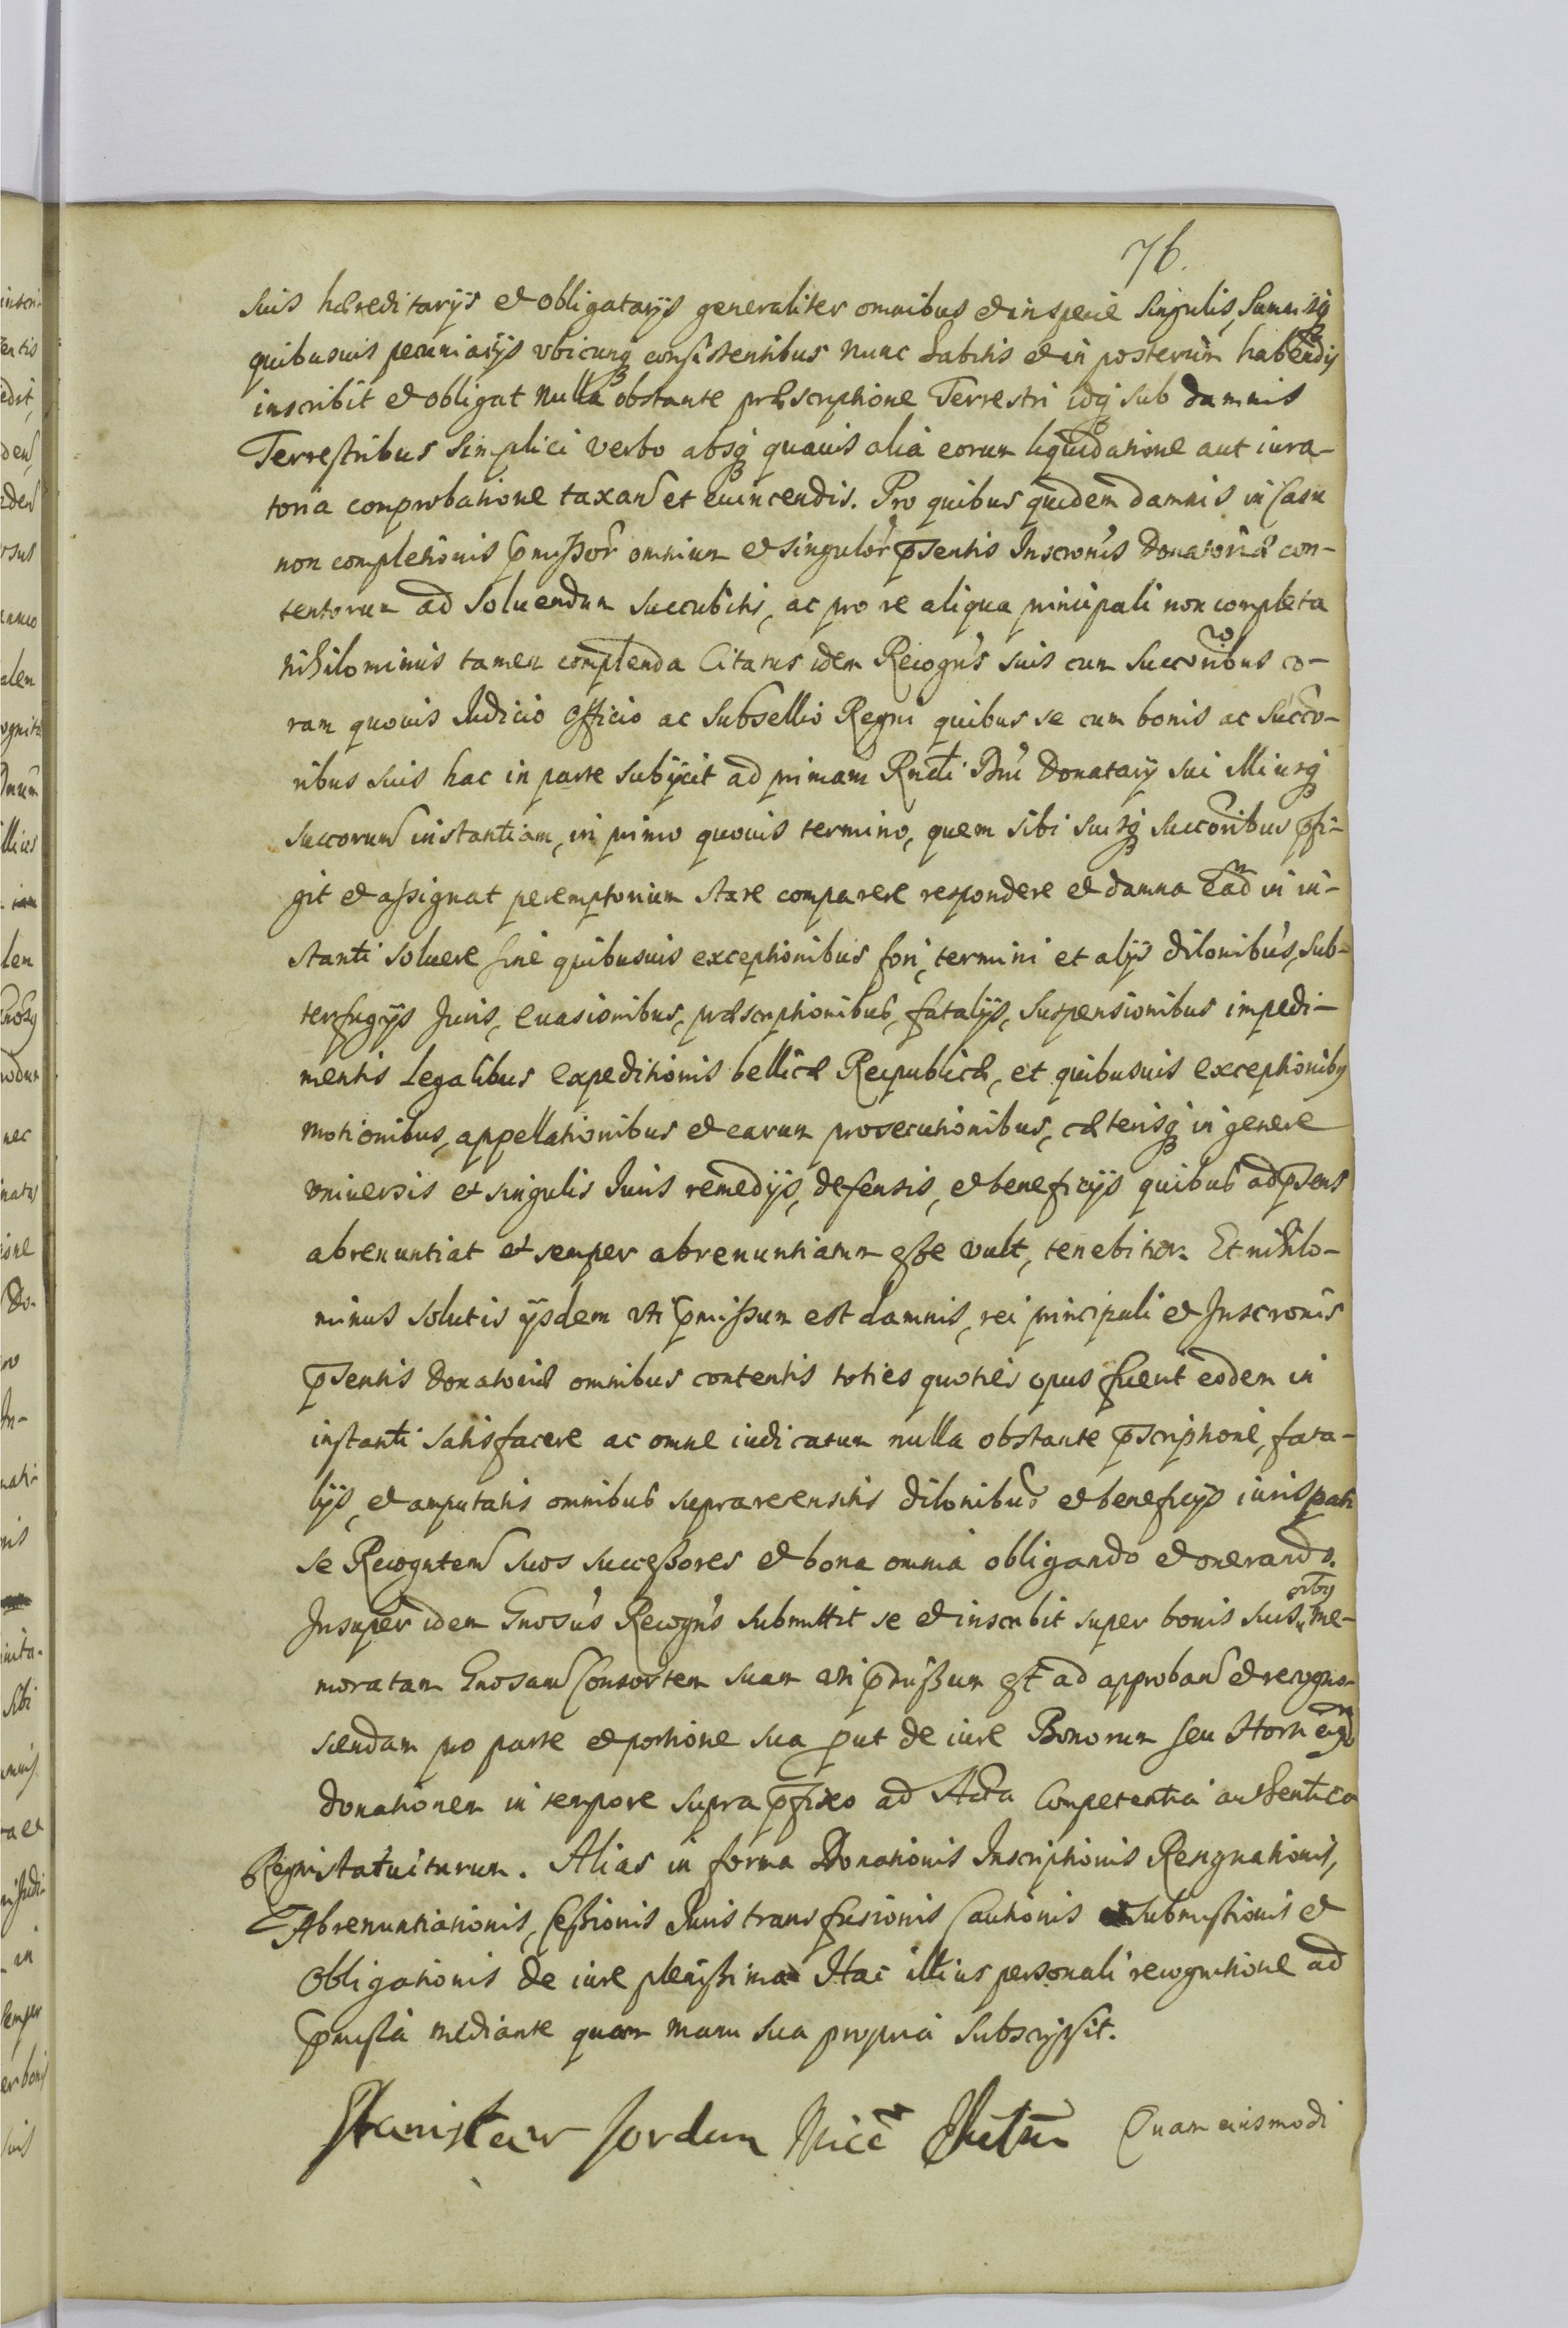 76.
suis hæreditarijs et obligatarijs generaliter omnibus et in specie singulis, Summisq̃
quibusuis pecuniarijs vbicunq̃ consistentibus nunc habitis et in posterum habendis
inscribit et obligat nulla obstante præscriptione Terrestri idq̃ sub damnis
Terrestribus simplici verbo absq̃ quauis alia eorum liquidatione aut iura-
toria comprobatione taxan̄ et euincendis. Pro quibus quidem damnis in casu
non completionis p̄missor̄ omnium et singulor̄ p̄sentis Inscronis donatoriæ con-
tentorum ad soluendum succubitis, ac pro re aliqua principali non completa
nihilominus tamen complenda Citatus idem Recogn̄s suis cum succoribus co-
ram quouis Iudicio Officio ac Subsellio Regni quibus se cum bonis ac succo-
ribus suis hac in parte subijcit ad primam Rndi Dni Donatarij sui illiusq̃
succorum instantiam, in primo quouis termino, quem sibi suisq̃ succoribus p̄fi-
git et assignat peremptorium stare comparere respondere et damna ead̄m in in-
stanti soluere sine quibusuis exceptionibus fori, termini et alijs dilonibus, sub-
terfugijs Iuris, euasionibus, præscriptionibus, fatalijs, suspensionibus impedi-
mentis legalibus expeditionis bellicæ Reipublicæ, et quibusuis exceptionibus
motionibus, appellationibus et earum prosecutionibus, cæterisq̃ in genere
vniuersis et singulis Iuris remedijs, defensis, et beneficijs quibus ad p̄sens
abrenuntiat et semper abrenuntiatum esse vult, tenebitur. Et nihilo-
minus solutis ijsdem vti p̄missum est damnis, rei principali et Inscronis
p̄sentis donatoriæ omnibus contentis toties quoties opus fuerit eodem in
instanti satisfacere ac omne iudicatum nulla obstante p̄scriptione, fata-
lijs, et amputatis omnibus suprarecensitis dilonibus et beneficijs iuris pati
se Recogntem̄ suos successores et bona omnia obligando et onerando.
Insuper idem Gnosus Recogn̄s submittit se et inscribit super bonis suis oībus me-
moratam Gnosam̄ Consortem suam vti p̄missum est ad approban̄ et recogno-
scendam pro parte et portione sua put de iure Bonorum seu Horti eiusd̄m
donationem in tempore supra p̄fixo ad Acta Competentia authentica
Regni statuiturum. Alias in forma Donationis Inscriptionis Resignationis,
Abrenuntiationis, Cessionis Iuris transfusionis Cautionis Submissionis et
Obligationis de iure plenissima Hac illius personali recognitione ad
p̄missa mediante quam manu sua propria subscripsit.
Stanislaw Jordan
Quam eiusmodi